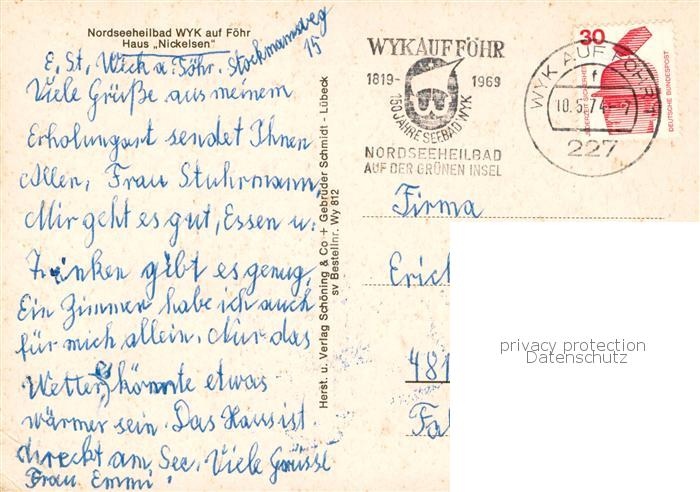 Nordseeheilbad WYK auf Föhr
Haus „Nickelsen"
z. St. Wick a. Föhr. Stockmannsweg
15
Viele Grüße aus meinem
Erholungsort sendet Ihnen
Allen, Frau Stuhrmann,
Mir geht es gut, Essen u.
Trinken gibt es genug,
Ein Zimmer habe ich auch
für mich allein. Nur das
Wetter könnte etwas
wärmer sein. Das Haus ist
direckt am See. Viele Grüsse
Frau Emmi
Herst. u. Verlag Schöning & Co + Gebrüder Schmidt - Lübeck
sv Bestellnr. Wy 812
WYK AUF FÖHR
1819- 1969
150 JAHRE SEEBAD WYK
NORDSEEHEILBAD
AUF DER GRÜNEN INSEL
30
JEDERZEIT SICHERHEIT
DEUTSCHE BUNDESPOST
WYK AUF FÖHR 1
f
10.5.74-7
227
Firma
Erich
481
privacy protection
Datenschutz